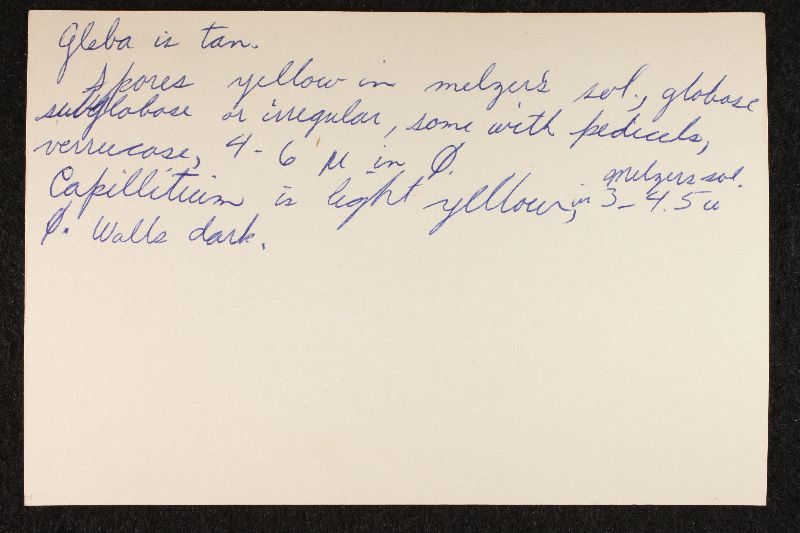 Gleba is tan.
Spores yellow in melzer's sol., globose
subglobose or irregular, some with pedicels,
verrucose, 4-6 µ in Ø.
Capillitium is light yellow, in melzers sol. 3-4.5 u
Ø. Walls dark.